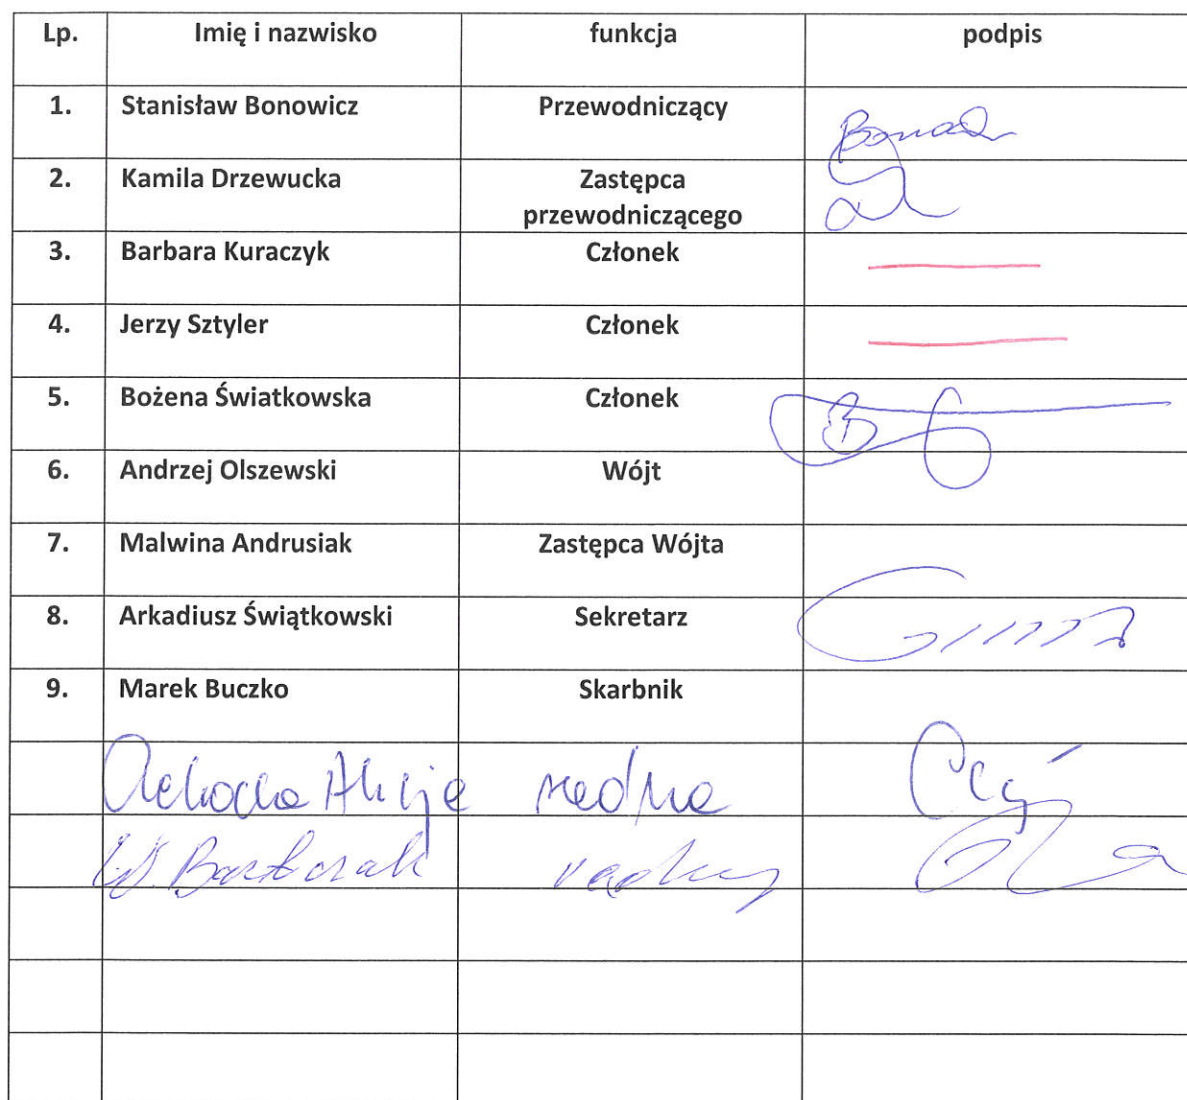 Lp. Imię i nazwisko funkcja podpis
1. Stanisław Bonowicz Przewodniczący
2. Kamila Drzewucka Zastępca
przewodniczącego
3. Barbara Kuraczyk Członek
4. Jerzy Sztyler Członek
5. Bożena Światkowska Członek
6. Andrzej Olszewski Wójt
7. Malwina Andrusiak Zastępca Wójta
8. Arkadiusz Świątkowski Sekretarz
9. Marek Buczko Skarbnik
radna
W. Bartczak radny